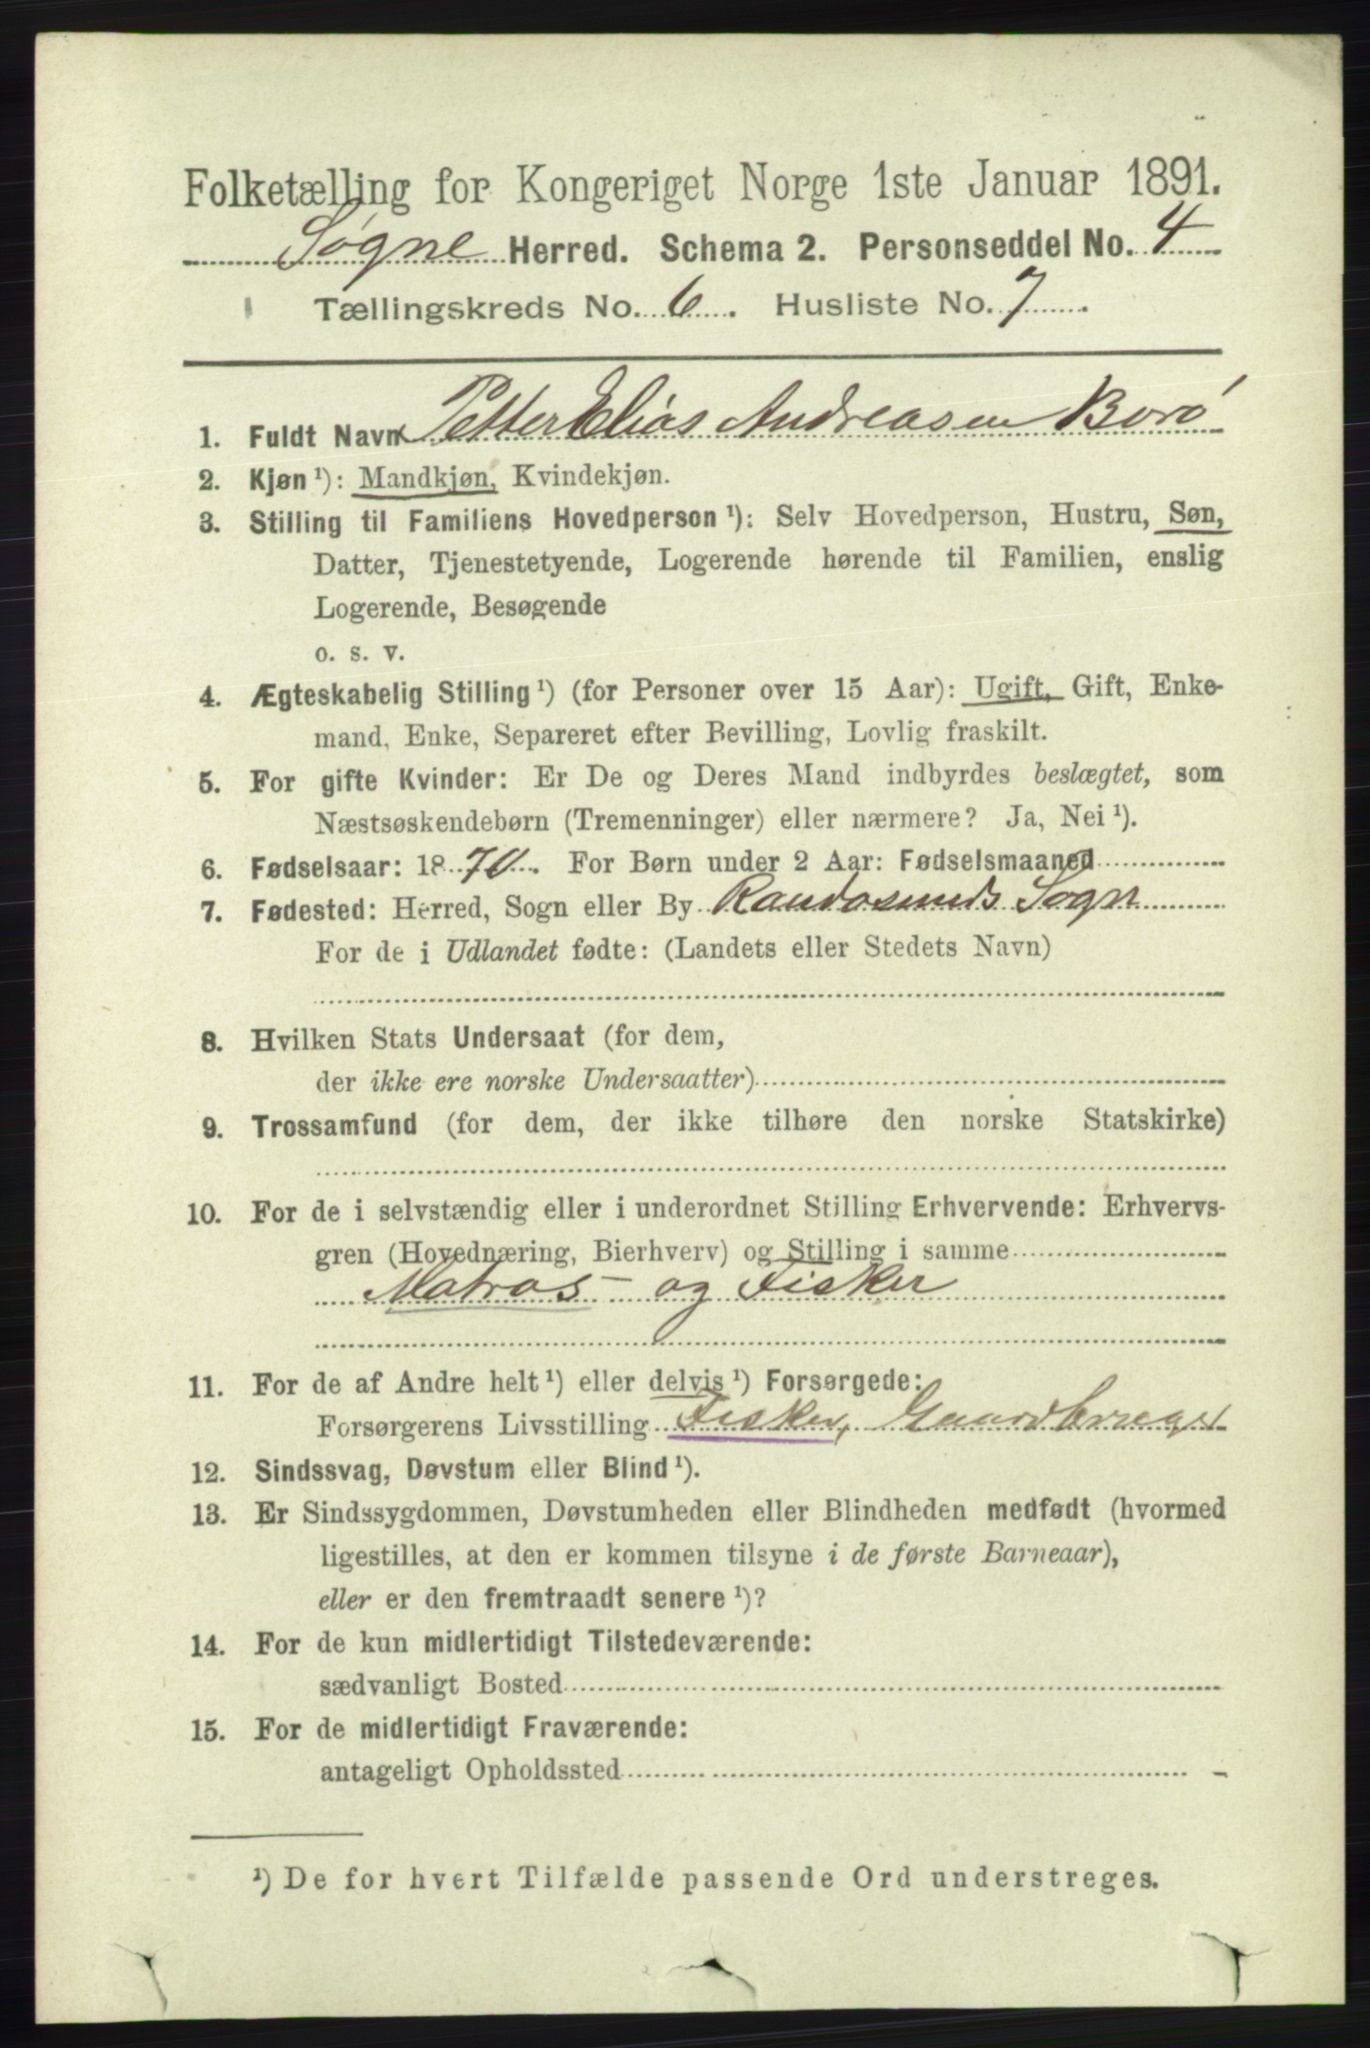 Folketælling for Kongeriget Norge 1ste Januar 1891.
Søgne Herred. Schema 2. Personseddel No. 4
Tællingskreds No. 6. Husliste No. 7
1. Fuldt Navn Petter Elias Andreasen Borø
2. Kjøn ¹): Mandkjøn, Kvindekjøn.
3. Stilling til Familiens Hovedperson ¹): Selv Hovedperson, Hustru, Søn,
Datter, Tjenestetyende, Logerende hørende til Familien, enslig
Logerende, Besøgende
o. s. v.
4. Ægteskabelig Stilling ¹) (for Personer over 15 Aar): Ugift, Gift, Enke-
mand, Enke, Separeret efter Bevilling, Lovlig fraskilt.
5. For gifte Kvinder: Er De og Deres Mand indbyrdes beslægtet, som
Næstsøskendebørn (Tremenninger) eller nærmere? Ja, Nei ¹).
6. Fødselsaar: 1870. For Børn under 2 Aar: Fødselsmaaned
7. Fødested: Herred, Sogn eller By Randøsunds Sogn
For de i Udlandet fødte: (Landets eller Stedets Navn)
8. Hvilken Stats Undersaat (for dem,
der ikke ere norske Undersaatter)
9. Trossamfund (for dem, der ikke tilhøre den norske Statskirke)
10. For de i selvstændig eller i underordnet Stilling Erhvervende: Erhvervs-
gren (Hovednæring, Bierhverv) og Stilling i samme
Matros - og Fisker
11. For de af Andre helt ¹) eller delvis ¹) Forsørgede:
Forsørgerens Livsstilling Fisker, Gaardbruger
12. Sindssvag, Døvstum eller Blind ¹).
13. Er Sindssygdommen, Døvstumheden eller Blindheden medfødt (hvormed
ligestilles, at den er kommen tilsyne i de første Barneaar),
eller er den fremtraadt senere ¹)?
14. For de kun midlertidigt Tilstedeværende:
sædvanligt Bosted
15. For de midlertidigt Fraværende:
antageligt Opholdssted
¹) De for hvert Tilfælde passende Ord understreges.